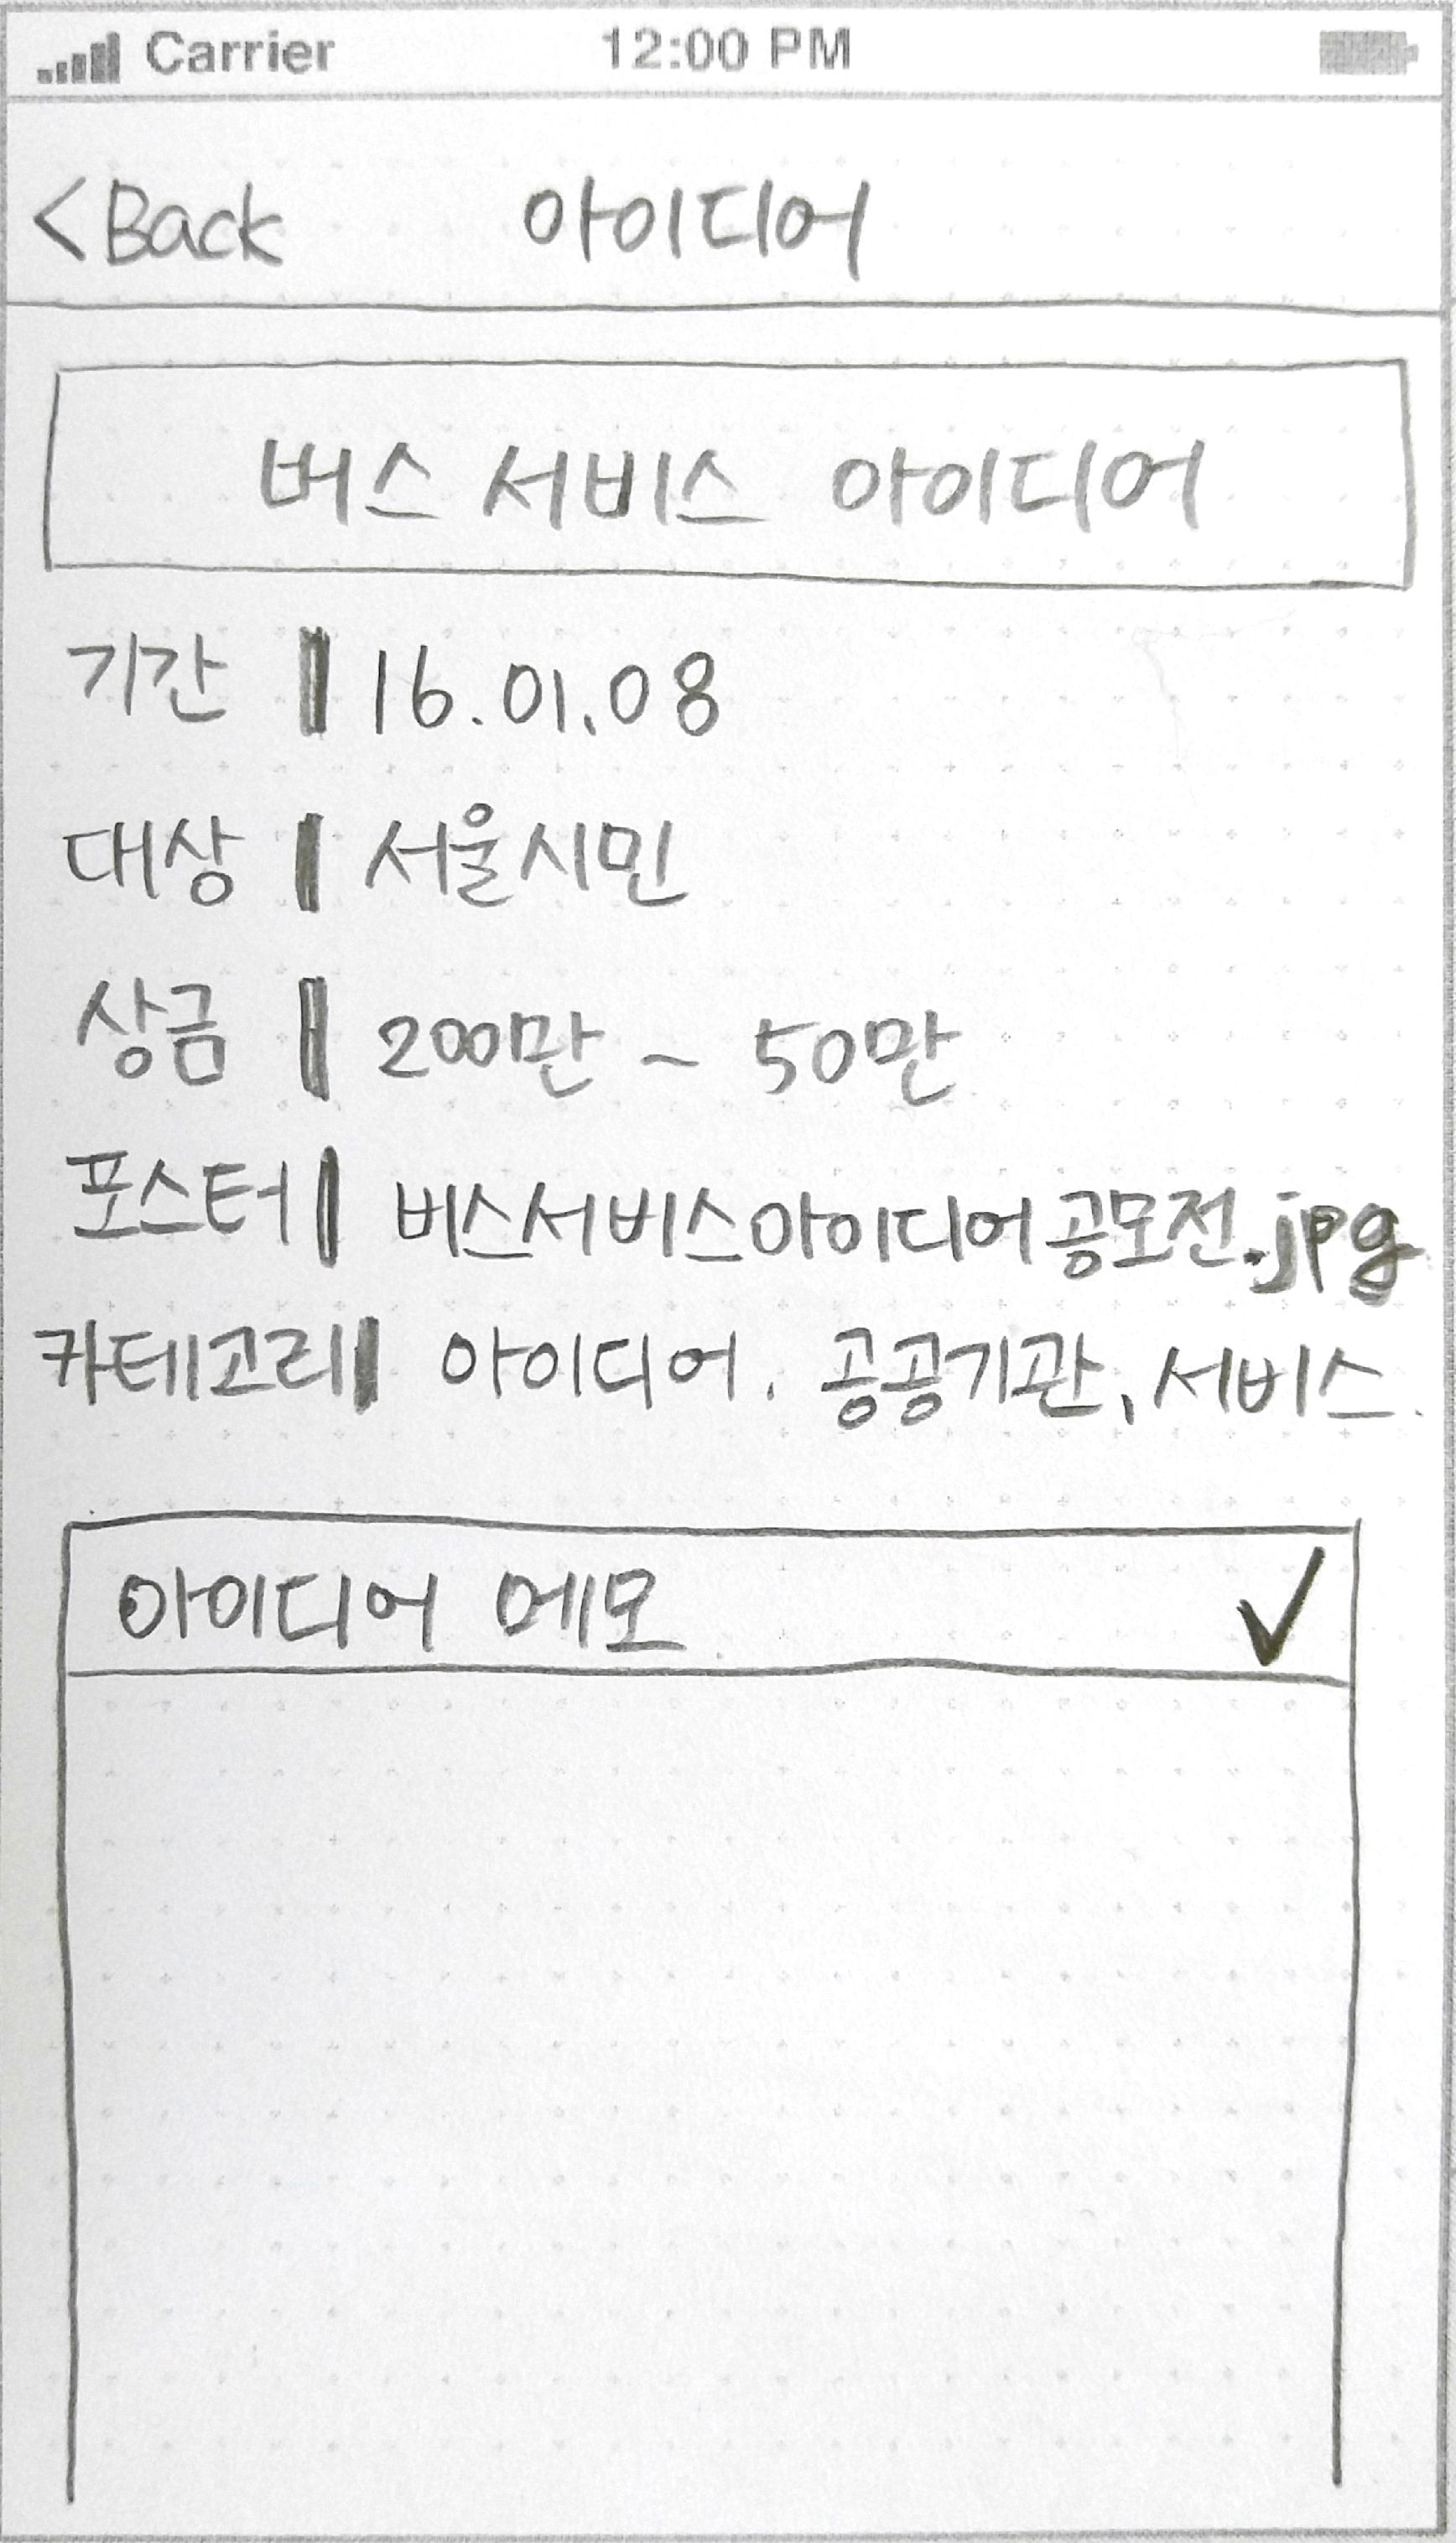 Carrier 12:00 PM
<Back 아이디어
버스 서비스 아이디어
기간 | 16.01.08
대상 | 서울시민
상금 | 200만 ~ 50만
포스터 | 버스서비스아이디어공모전.jpg
카테고리 | 아이디어. 공공기관, 서비스.
아이디어 메모